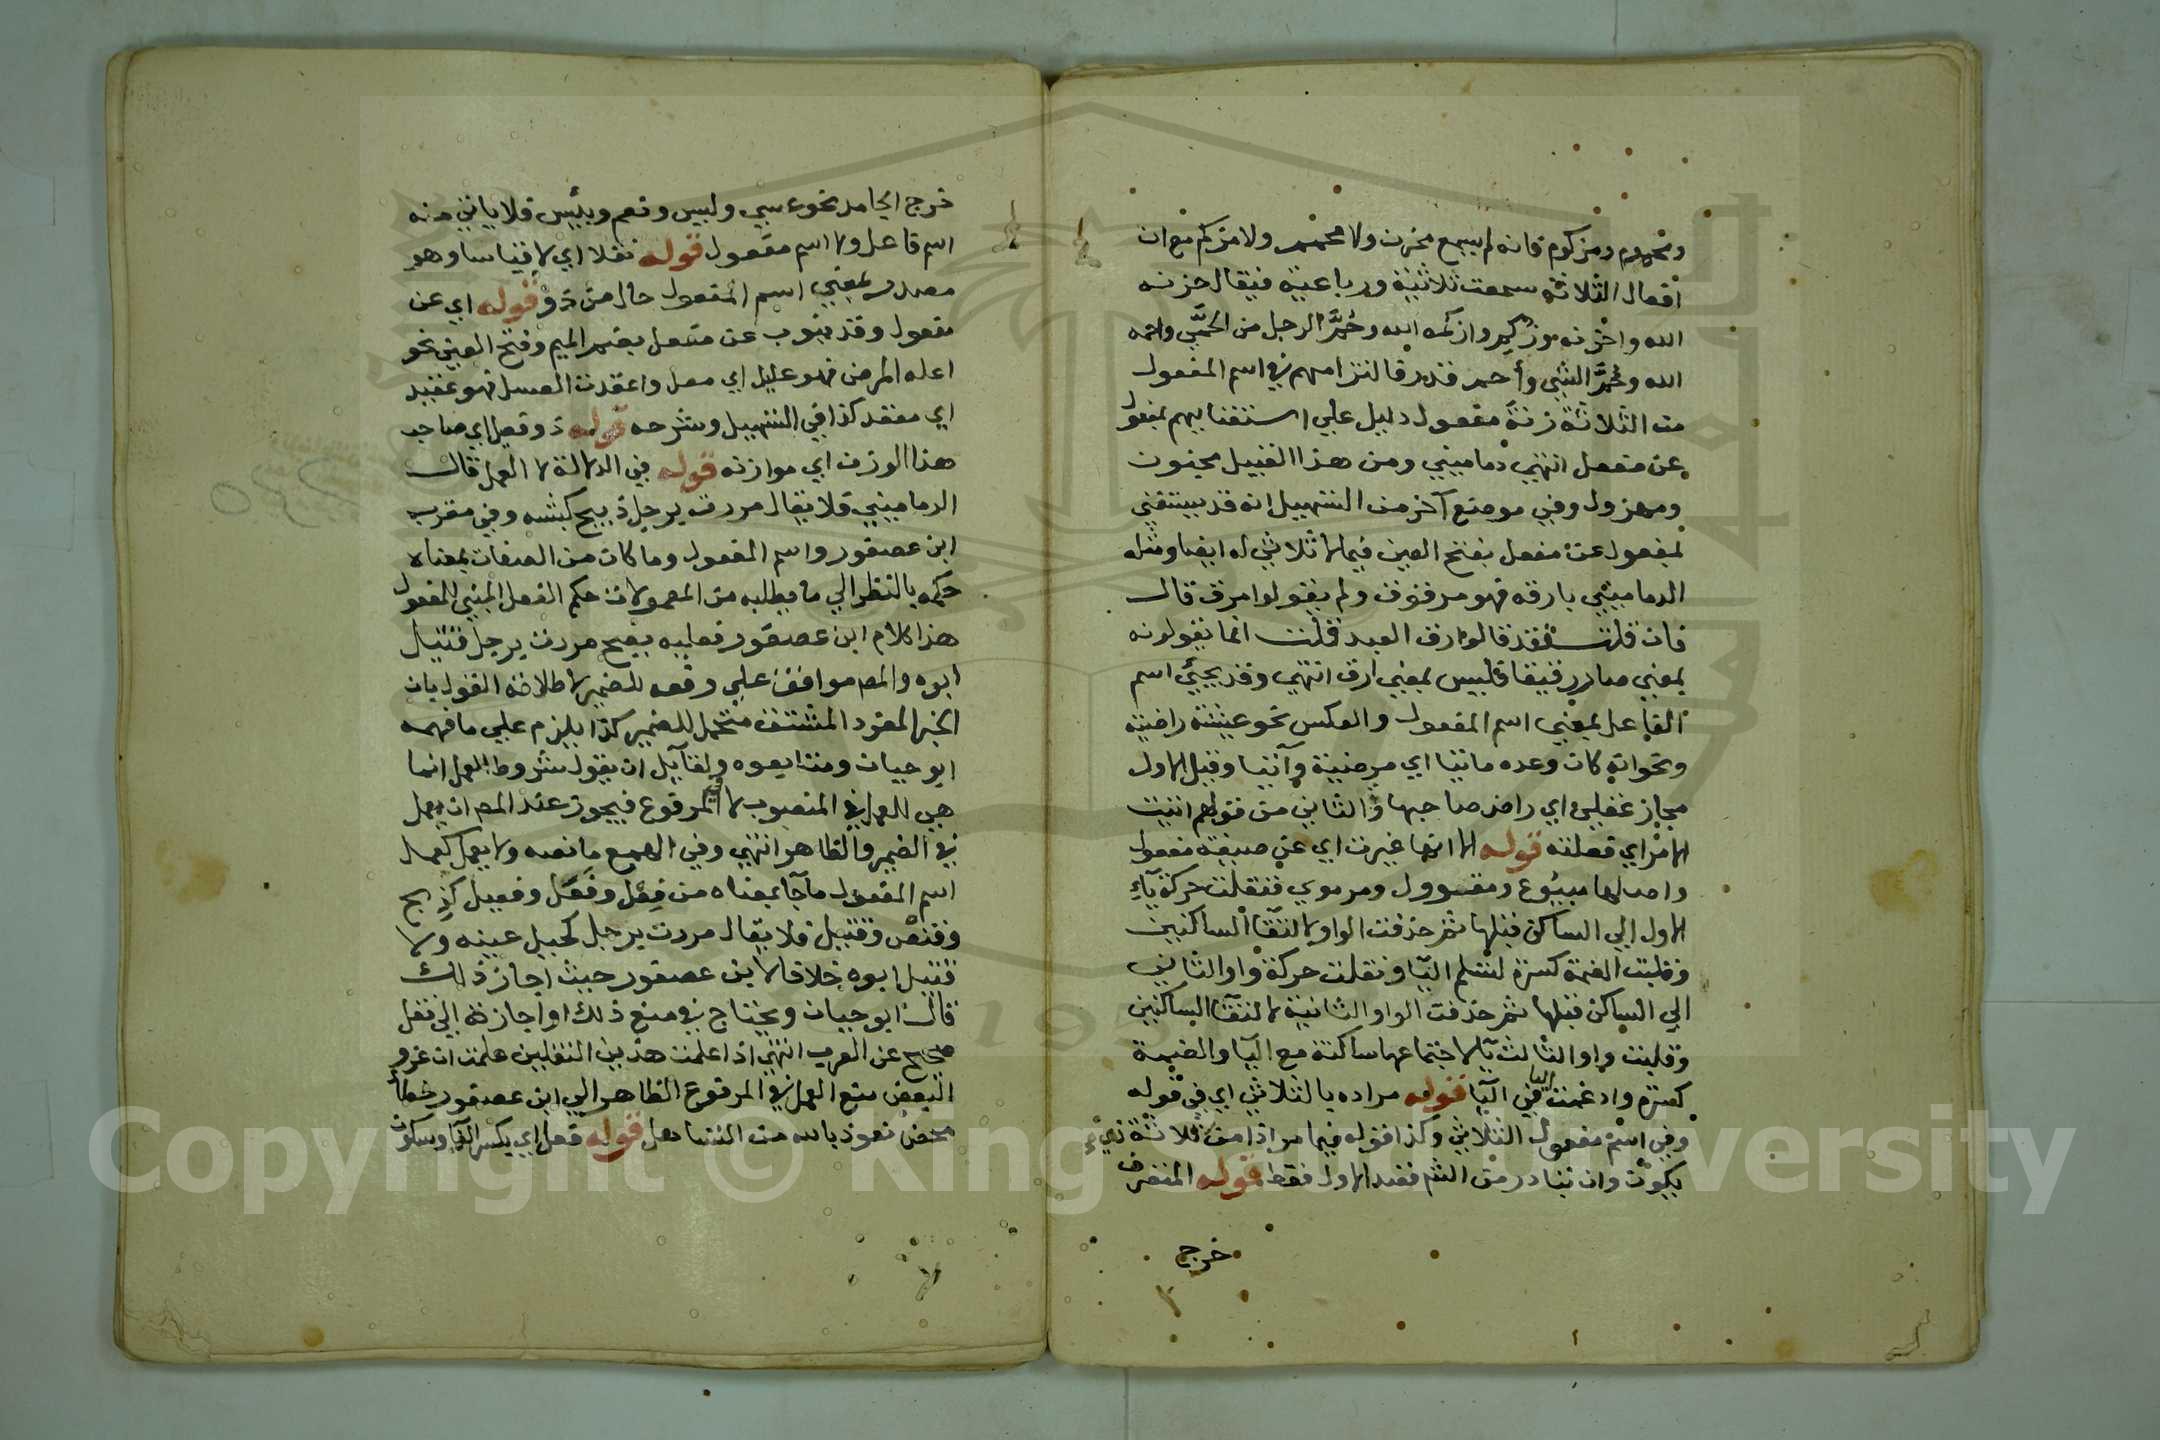 ومحموم ومزكوم فانه لم يسمع محزن ولا محمم ولا مزكم مع ان
افعال الثلاثة سمعت ثلاثية ورباعية فيقال حزنه
الله واحزنه وزكم وازكمه الله وحُمَّ الرجل من الحمَّى واحمه
الله وحُمَّ الشي وأحم فتدر قا لتزامهم في اسم المفعول
من الثلاثة زنة مفعول دليل علي استغنايهم بمفعول
عن مفعل انتهي دماميني ومن هذا القبيل مجنون
ومهزول وفي موضع آخر من التسهيل انه قد يستغني
بمفعول عن مفعل بفتح العين فيما لا ثلاثي له ايضا ومثله
الدماميني بارقه فهو مرقوق ولم يقولوا مرق قال
فان قلت فقد قالوا رق العبد قلت انما يقولونه
بمعني صار رقيقا فليس بمعني ارق انتهي وقد يجيئ اسم
الفاعل بمعني اسم المفعول والعكس نحو عيشة راضية
ونحو انه كان وعده ماتيا اي مرضية وآتيا وقيل الاول
مجاز عقلي اي راض صاحبها والثاني من قولهم اتيت
الامر اي فعلته قوله الا انها غيرت اي عن صيغة مفعول
واصلها مبيوع ومقوول ومرموي فنقلت حركة ياء
الاول الي الساكن قبلها ثم حذفت الواو لالتقا الساكنين
وقلبت الضمة كسرة لتسلم اليا ونقلت حركة واو الثاني
الي الساكن قبلها ثم حذفت الواو الثانية لالتقا الساكنين
وقلبت واو الثالث يا لاجتماعها ساكنة مع اليا والضمة
كسرة وادغمت اليا في اليا قوله مراده بالثلاثي اي في قوله
وفي اسم مفعول الثلاثي وكذا قوله فيما مر اذا من ثلاثة ذي
يكون وان تبادر من الشم فقد الاول فقط قوله المتصرف
خرج
خرج الجامد نحو عسي وليس ونعم وبئيس فلا ياتي منه
اسم فاعل ولا اسم مفعول قوله نقلا اي لا قياسا وهو
مصدر بمعني اسم المفعول حال من ذو قوله اي عن
مفعول وقد ينوب عن مفعل بضم الميم وفتح العين نحو
اعله المرض فهو عليل اي معل واعقدت العسل فهو عقيد
اي معقد كذا في التسهيل وشرحه قوله ذو فعيل اي صاحب
هذا الوزن اي موازنه قوله في الدلالة لا العمل قال
الدماميني فلا يقال مررت برجل ذبيح كبشه وفي مقرب
ابن عصفور واسم المفعول وما كان من الصفات بمعناه
حكمه بالنظر الي ما يطلبه من المعمولات حكم الفعل المبني للمفعول
هذا كلام ابن عصفور فعليه يصح مررت برجل قتيل
ابوه والمص موافق علي رفعه للضمير لاطلاقه القول بان
الخبر المفرد المشتق متحمل للضمير كذا يلزم علي ما فهمه
ابو حيان ومتابعوه ولقايل ان يقول شروط العمل انما
هي للعمل في المنصوب لا المرفوع فيجوز عند المص ان يعمل
في الضمير والظاهر انتهي وفي الهمع ما نصه ولا يعمل كعمل
اسم المفعول ما جا بمعناه من فِعْل وفَعَل وفعيل كذبح
وقنص وقتيل فلا يقال مررت برجل كحيل عينه ولا
قتيل ابوه خلافا لابن عصفور حيث اجاز ذلك
قال ابو حيان ويحتاج في منع ذلك او اجازته الي نقل
صحيح عن العرب انتهي اذا علمت هذين النقلين علمت ان عزو
البعض منع العمل في المرفوع الظاهر الي ابن عصفور خطأ
محض نعوذ بالله من التساهل قوله فعل اي بكسر الفا وسكون
Copyright © King Saud University